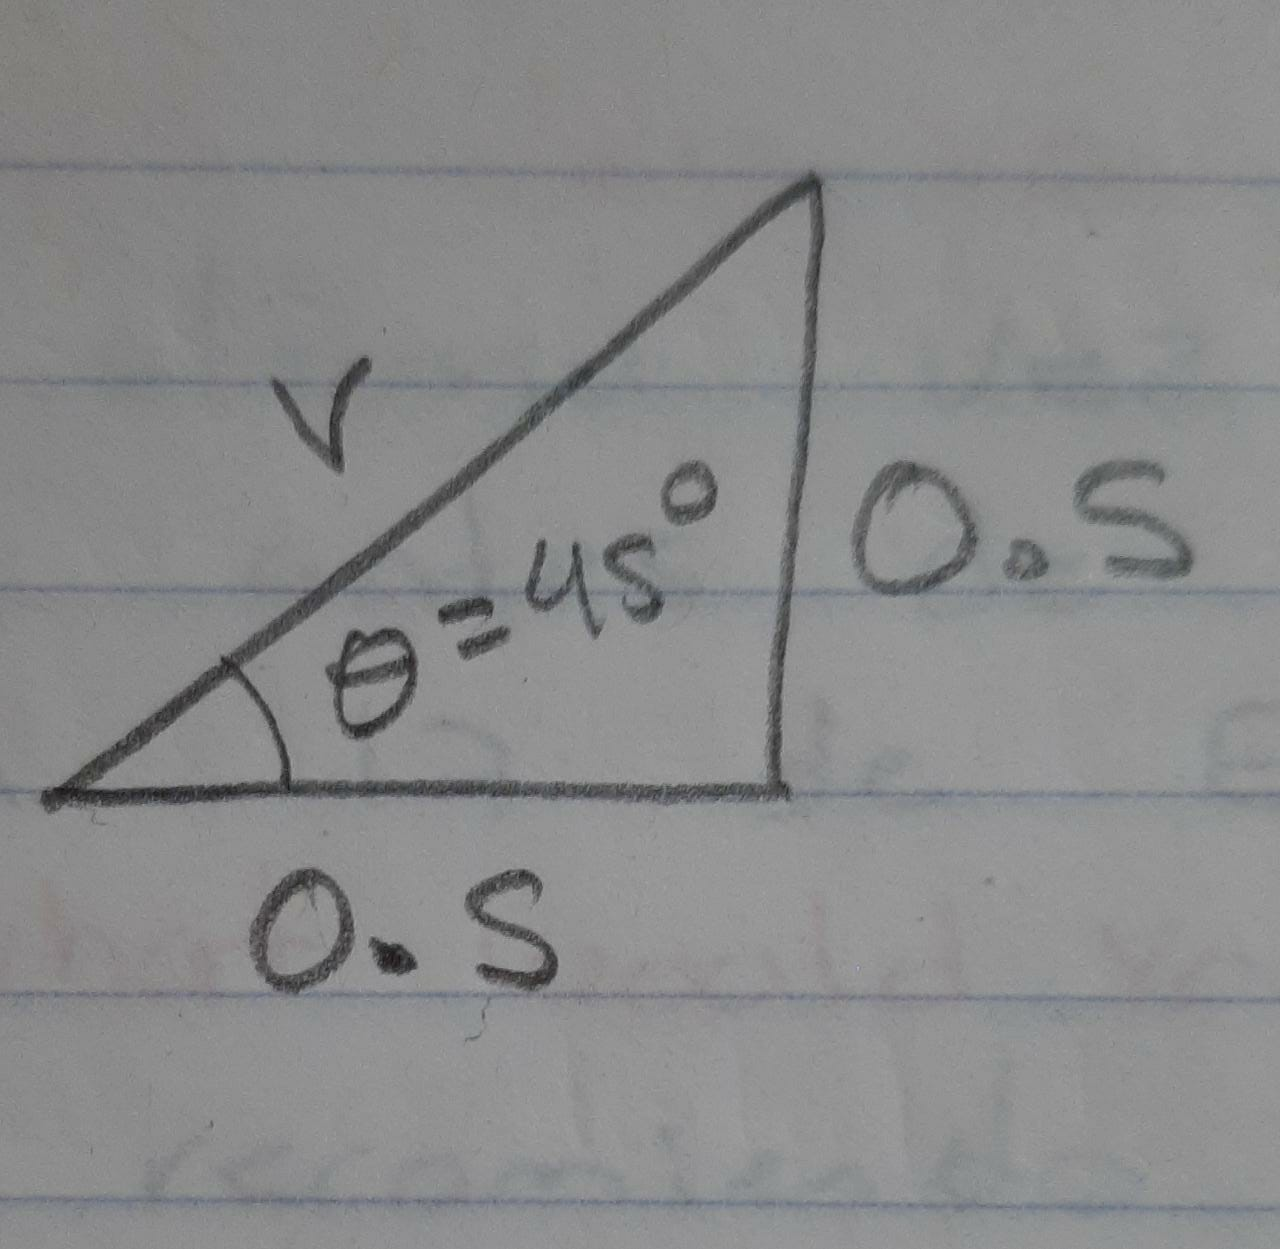 v
θ=45°
0.5
0.5